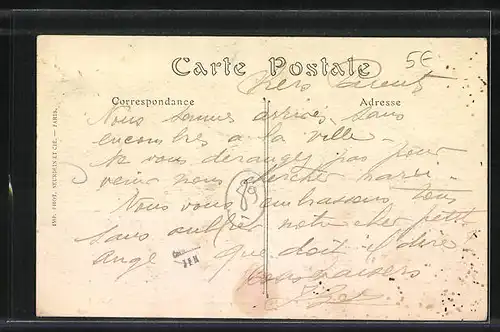 5€
Carte Postale
Chers Parents
Correspondance
Adresse
Nous sommes arrivés sans
encombres a la ville
Ne vous dérangez pas pour
venir nous chercher mardi
Nous vous embrassons tous
sans oublier notre cher petit
ange que doit il dire
bons baisers
IMP. PHOT. NEURDEIN ET CIE. — PARIS.